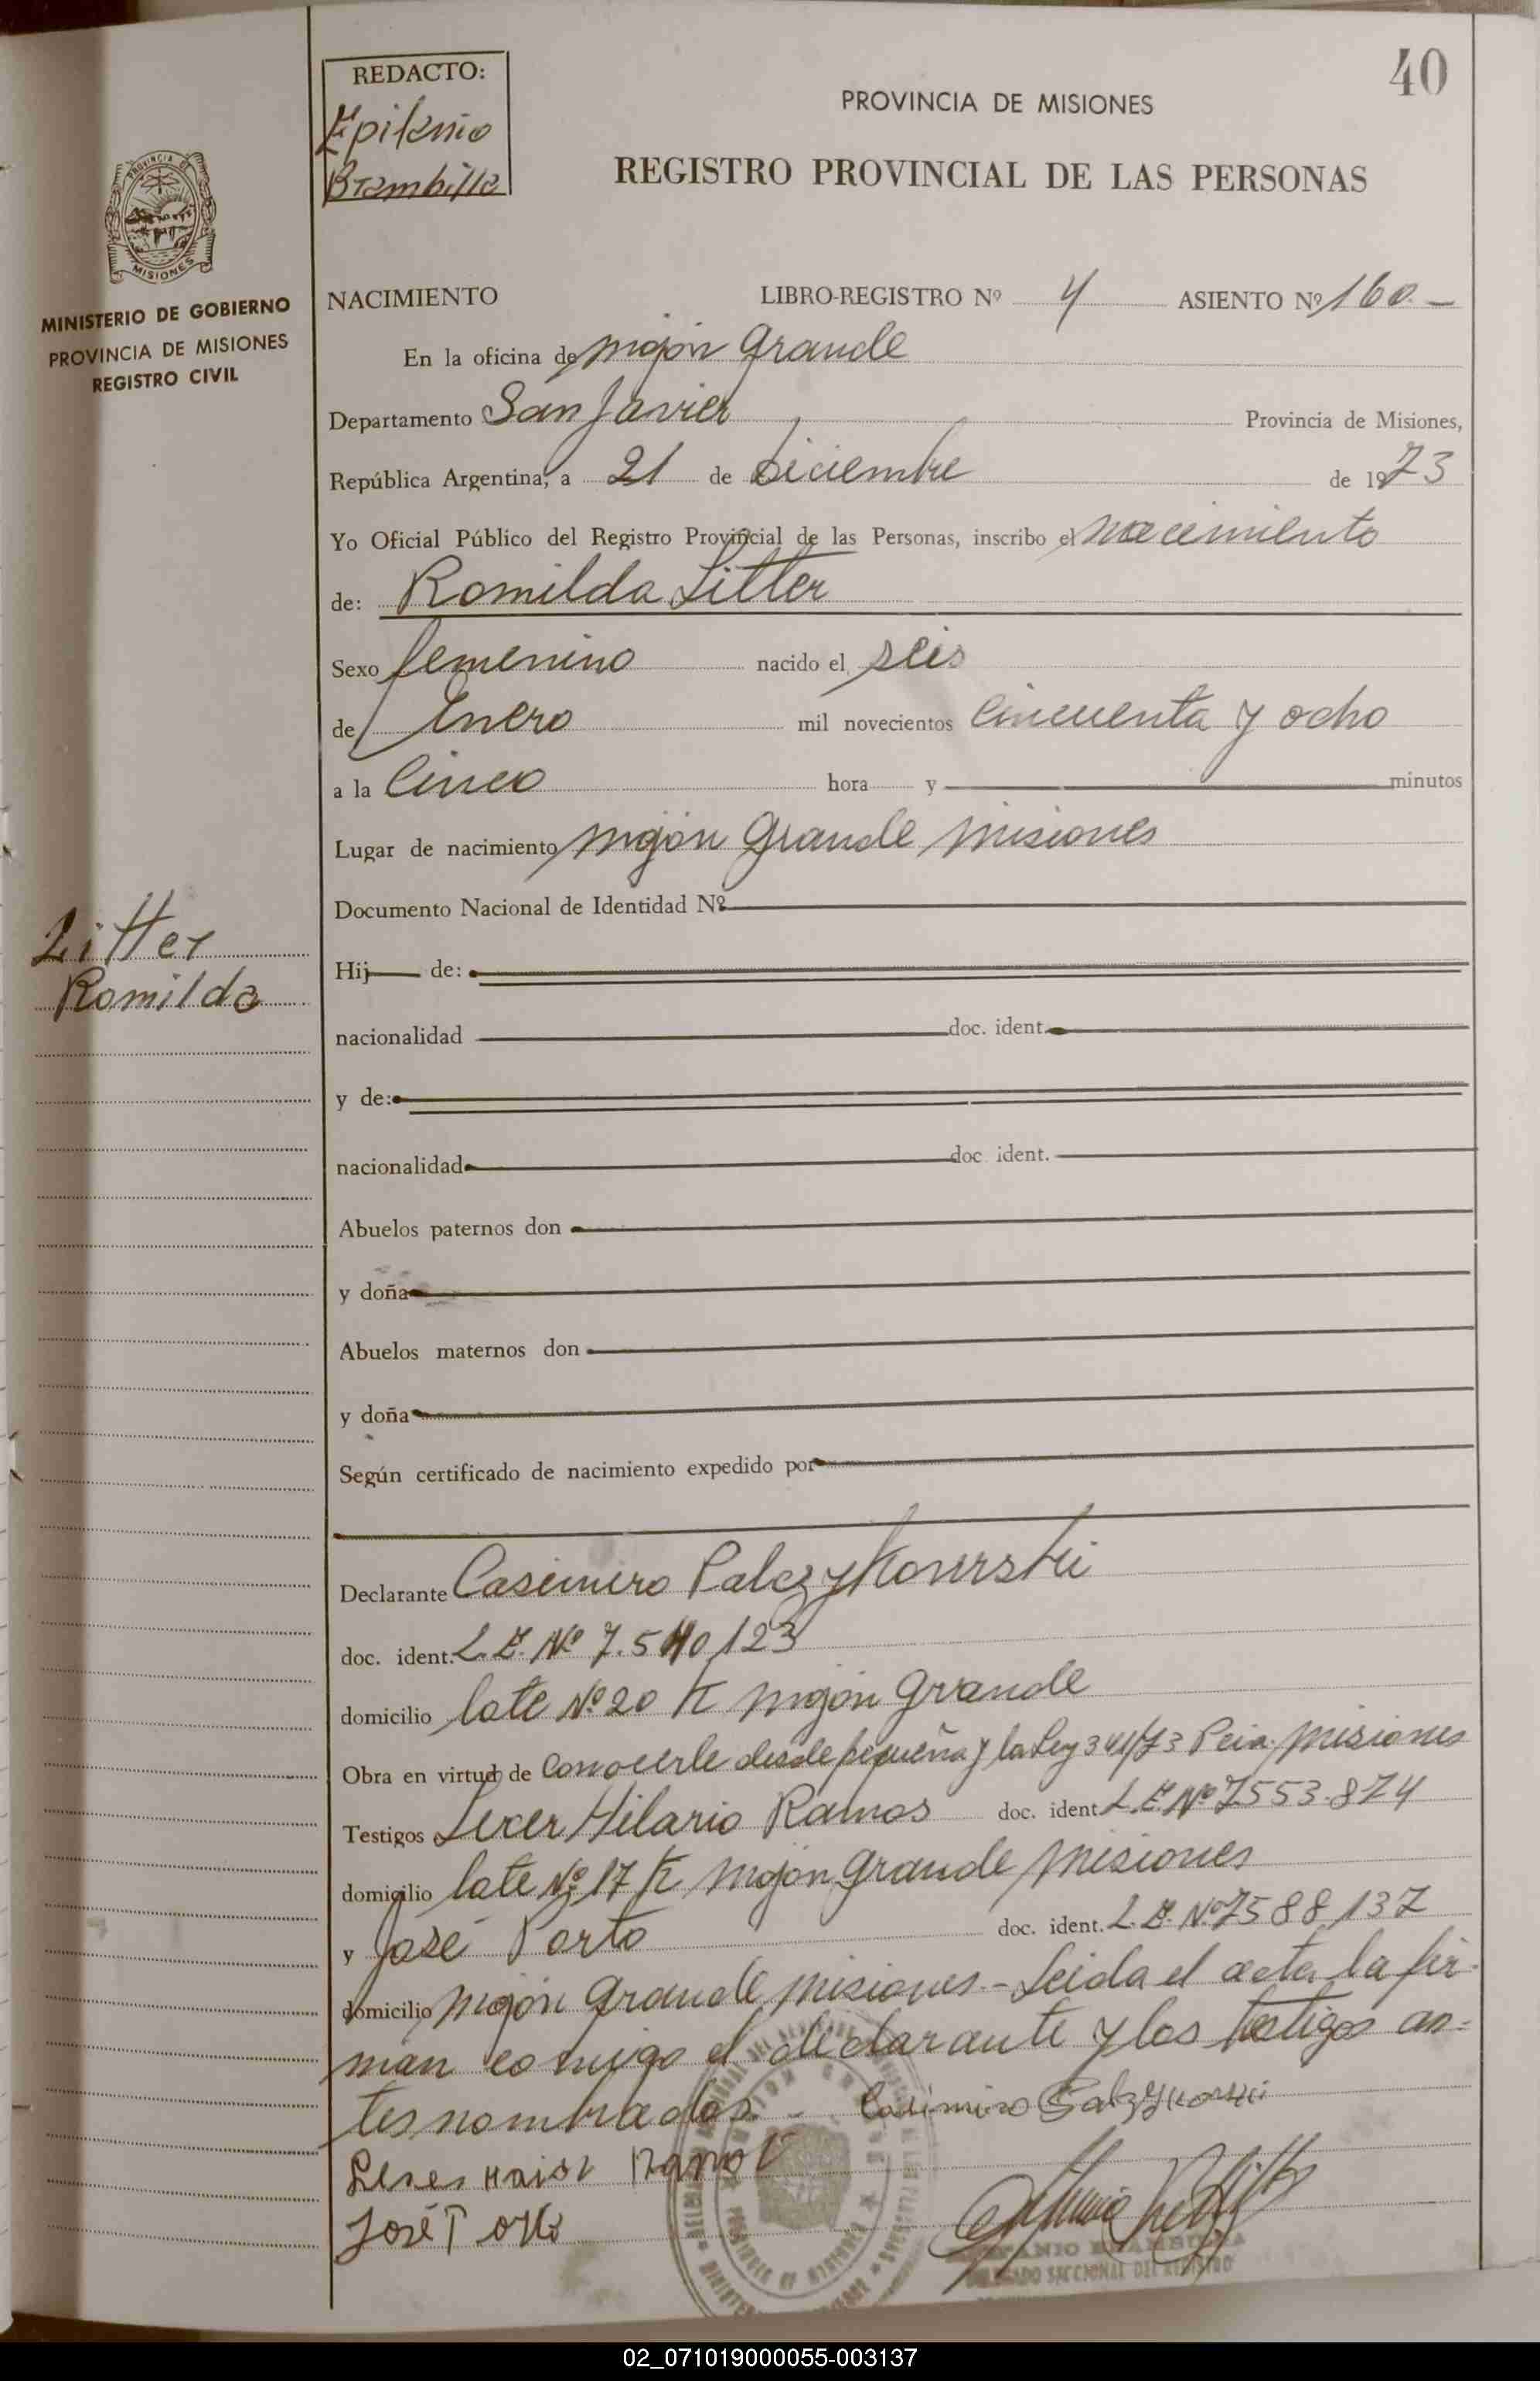 40
REDACTO:
Epifanio
Brambilla
PROVINCIA DE MISIONES
REGISTRO PROVINCIAL DE LAS PERSONAS
PROVINCIA DE
MISIONES
MINISTERIO DE GOBIERNO
PROVINCIA DE MISIONES
REGISTRO CIVIL
NACIMIENTO LIBRO-REGISTRO Nº 4 ASIENTO Nº 160.-
En la oficina de Mojón Grande
Departamento San Javier Provincia de Misiones,
República Argentina, a 21 de Diciembre de 1973
Yo Oficial Público del Registro Provincial de las Personas, inscribo el nacimiento
de: Romilda Litter
Sexo femenino nacido el seis
de Enero mil novecientos Cincuenta y ocho
a la Cinco hora y minutos
Lugar de nacimiento Mojón Grande Misiones
Documento Nacional de Identidad Nº
Litter
Romilda
Hij de:
nacionalidad doc. ident.
y de:
nacionalidad doc. ident.
Abuelos paternos don
y doña
Abuelos maternos don
y doña
Según certificado de nacimiento expedido por
Declarante Casimiro Palczykowski
doc. ident. L.E. Nº 7.540.123
domicilio lote Nº 20 K Mojón Grande
Obra en virtud de Conocerle desde pequeña y la Ley 341/73 Pcia. Misiones
Testigos Lexer Hilario Ramos doc. ident. L.E. Nº 7553.874
domicilio lote Nº 17 K Mojón Grande Misiones
y José Porto doc. ident. L.E. Nº 7588.137
domicilio Mojón Grande Misiones.- Leida el acta la fir-
man conmigo el declarante y los testigos an-
tes nombrados.
José Porto
DELEGADO SECCIONAL DEL REGISTRO
02_071019000055-003137